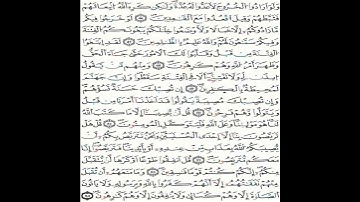 وَلَوْ أَرَادُوا۟ ٱلْخُرُوجَ لَأَعَدُّوا۟ لَهُۥ عُدَّةً وَلَٰكِن كَرِهَ ٱللَّهُ ٱنۢبِعَاثَهُمْ
فَثَبَّطَهُمْ وَقِيلَ ٱقْعُدُوا۟ مَعَ ٱلْقَٰعِدِينَ ۝ لَوْ خَرَجُوا۟ فِيكُم
مَّا زَادُوكُمْ إِلَّا خَبَالًا وَلَأَوْضَعُوا۟ خِلَٰلَكُمْ يَبْغُونَكُمُ ٱلْفِتْنَةَ
وَفِيكُمْ سَمَّٰعُونَ لَهُمْ وَٱللَّهُ عَلِيمٌۢ بِٱلظَّٰلِمِينَ ۝ لَقَدِ ٱبْتَغَوُا۟
ٱلْفِتْنَةَ مِن قَبْلُ وَقَلَّبُوا۟ لَكَ ٱلْأُمُورَ حَتَّىٰ جَآءَ ٱلْحَقُّ
وَظَهَرَ أَمْرُ ٱللَّهِ وَهُمْ كَٰرِهُونَ ۝ وَمِنْهُم مَّن يَقُولُ
ٱئْذَن لِّى وَلَا تَفْتِنِّىٓ أَلَا فِى ٱلْفِتْنَةِ سَقَطُوا۟ وَإِنَّ جَهَنَّمَ
لَمُحِيطَةٌۢ بِٱلْكَٰفِرِينَ ۝ إِن تُصِبْكَ حَسَنَةٌ تَسُؤْهُمْ
وَإِن تُصِبْكَ مُصِيبَةٌ يَقُولُوا۟ قَدْ أَخَذْنَآ أَمْرَنَا مِن قَبْلُ
وَيَتَوَلَّوا۟ وَّهُمْ فَرِحُونَ ۝ قُل لَّن يُصِيبَنَآ إِلَّا مَا كَتَبَ ٱللَّهُ
لَنَا هُوَ مَوْلَىٰنَا وَعَلَى ٱللَّهِ فَلْيَتَوَكَّلِ ٱلْمُؤْمِنُونَ ۝ قُلْ هَلْ
تَرَبَّصُونَ بِنَآ إِلَّآ إِحْدَى ٱلْحُسْنَيَيْنِ وَنَحْنُ نَتَرَبَّصُ بِكُمْ أَن
يُصِيبَكُمُ ٱللَّهُ بِعَذَابٍ مِّنْ عِندِهِۦٓ أَوْ بِأَيْدِينَا فَتَرَبَّصُوٓا۟ إِنَّا
مَعَكُم مُّتَرَبِّصُونَ ۝ قُلْ أَنفِقُوا۟ طَوْعًا أَوْ كَرْهًا لَّن يُتَقَبَّلَ
مِنكُمْ إِنَّكُمْ كُنتُمْ قَوْمًا فَٰسِقِينَ ۝ وَمَا مَنَعَهُمْ أَن تُقْبَلَ
مِنْهُمْ نَفَقَٰتُهُمْ إِلَّآ أَنَّهُمْ كَفَرُوا۟ بِٱللَّهِ وَبِرَسُولِهِۦ وَلَا يَأْتُونَ
ٱلصَّلَوٰةَ إِلَّا وَهُمْ كُسَالَىٰ وَلَا يُنفِقُونَ إِلَّا وَهُمْ كَٰرِهُونَ ۝